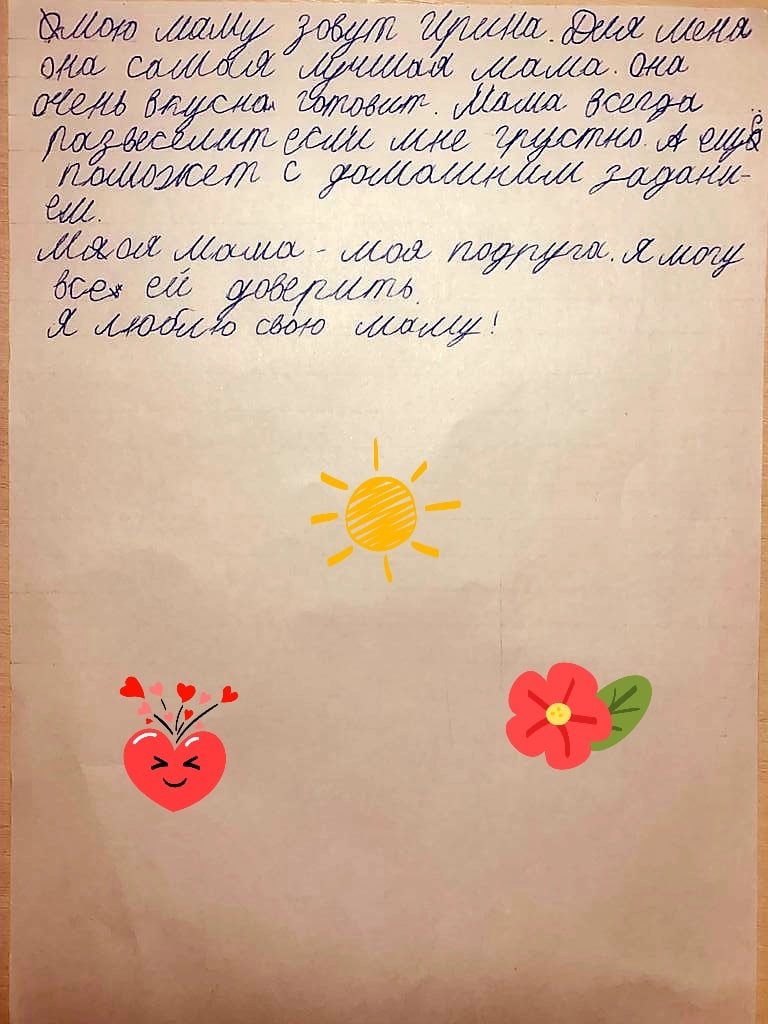 мою маму зовут Ирина. Для меня
она самая лучшая мама. она
очень вкусна готовит. Мама всегда
развеселит если мне грустно. А ещё
поможет с домашним задани-
ем.
Моя мама - моя подруга. Я могу
все ей доверить.
Я люблю свою маму!